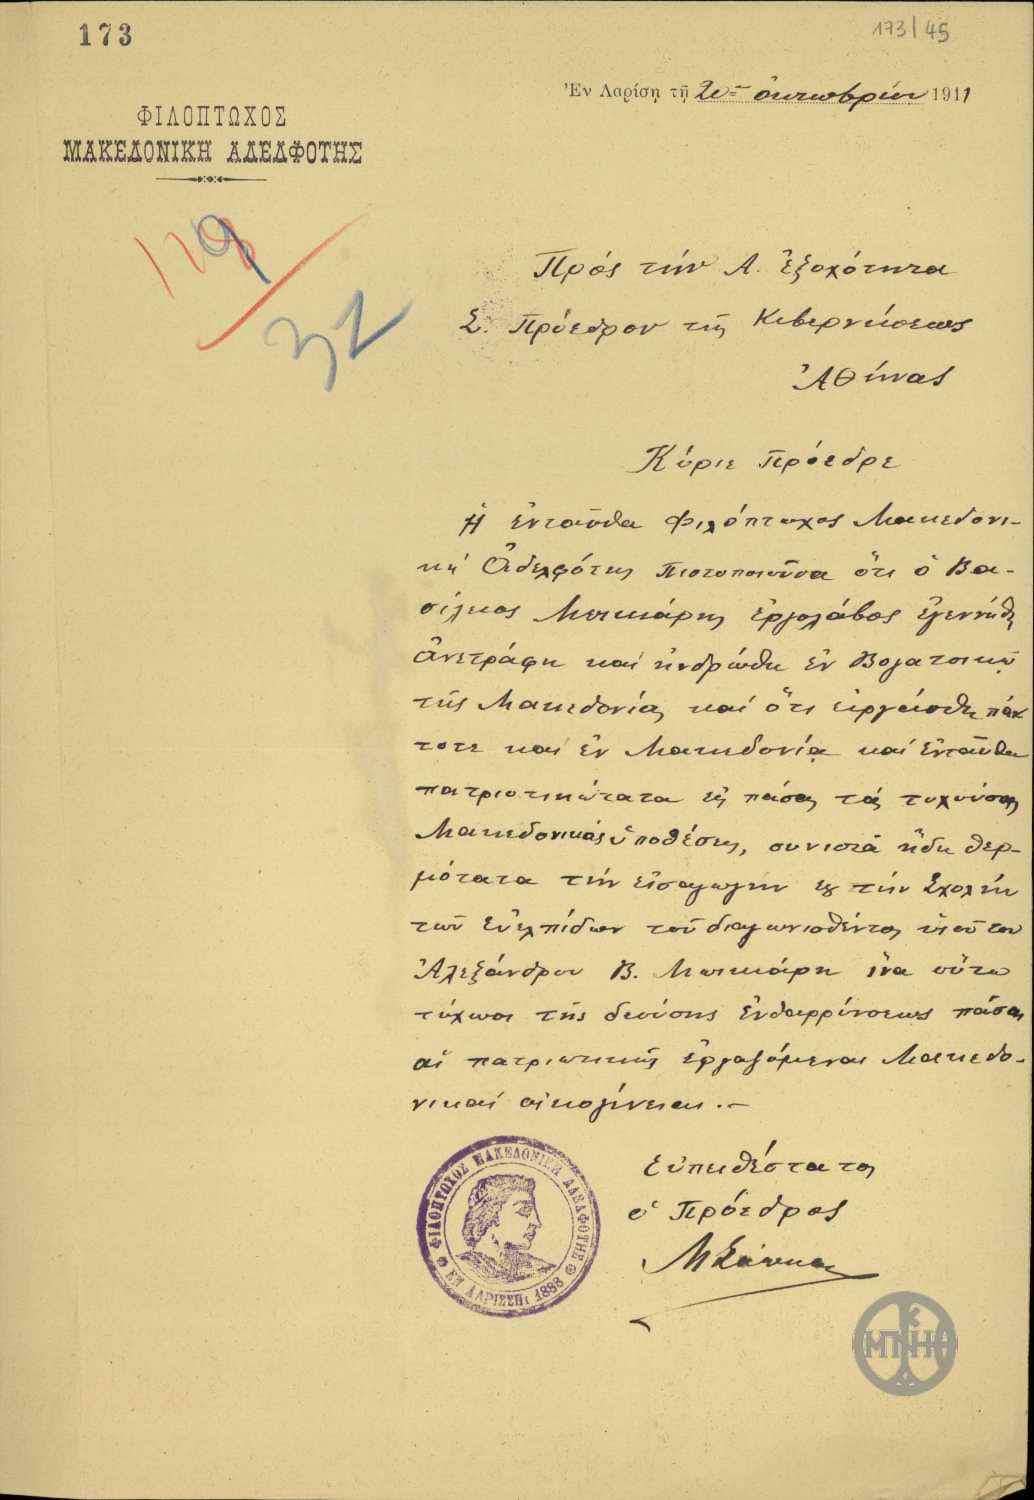 173
173/45
Ἐν Λαρίσῃ τῇ 2α ὀκτωβρίου 1911
ΦΙΛΟΠΤΩΧΟΣ
ΜΑΚΕΔΟΝΙΚΗ ΑΔΕΛΦΟΤΗΣ
Πρός τήν Α. ἐξοχότητα
Σ. Πρόεδρον τῆς Κυβερνήσεως
Ἀθήνας
Κύριε Πρόεδρε
Ἡ ἐνταῦθα Φιλόπτωχος Μακεδονι-
κή Ἀδελφότης Πιστοποιοῦσα ὅτι ὁ Βα-
σίλειος ἐργολάβος ἐγεννήθη
ἀνετράφη καί ἠνδρώθη ἐν Βογατσικῷ
τῆς Μακεδονίας καί ὅτι εἰργάσθη πάν
τοτε καί ἐν Μακεδονίᾳ καί ἐνταῦθα
πατριωτικώτατα εἰς πάσας τάς τυχούσας
Μακεδονικάς ὑποθέσεις, συνιστᾷ ἤδη θερ-
μότατα τήν εἰσαγωγήν εἰς τήν Σχολήν
τῶν Εὐελπίδων τοῦ διαγωνισθέντος υἱοῦ του
Ἀλεξάνδρου Β. ἵνα οὕτω
τύχωσι τῆς δεούσης ἐνθαρρύνσεως πάσαι
αἱ πατριωτικῶς ἐργαζόμεναι Μακεδο-
νικαί οἰκογένειαι.-
Εὐπειθέστατος
ὁ Πρόεδρος
ΦΙΛΟΠΤΩΧΟΣ ΜΑΚΕΔΟΝΙΚΗ ΑΔΕΛΦΟΤΗΣ
ΕΝ ΛΑΡΙΣΣΗι 1888
ΜΠΗΚ